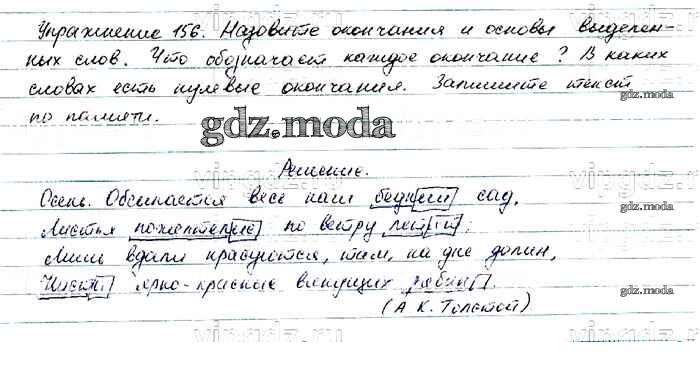 Упражнение 156. Назовите окончания и основы выделен-
ных слов. Что обозначает каждое окончание? В каких
словах есть нулевые окончания. Запишите текст
по памяти.
gdz.moda
gdz.moda
Решение.
Осень. Обсыпается весь наш бедный сад,
Листья пожелтелые по ветру летят;
Лишь вдали красуются, там, на дне долин,
Кисти ярко-красные вянущих рябин.
gdz.moda
(А К. Толстой)